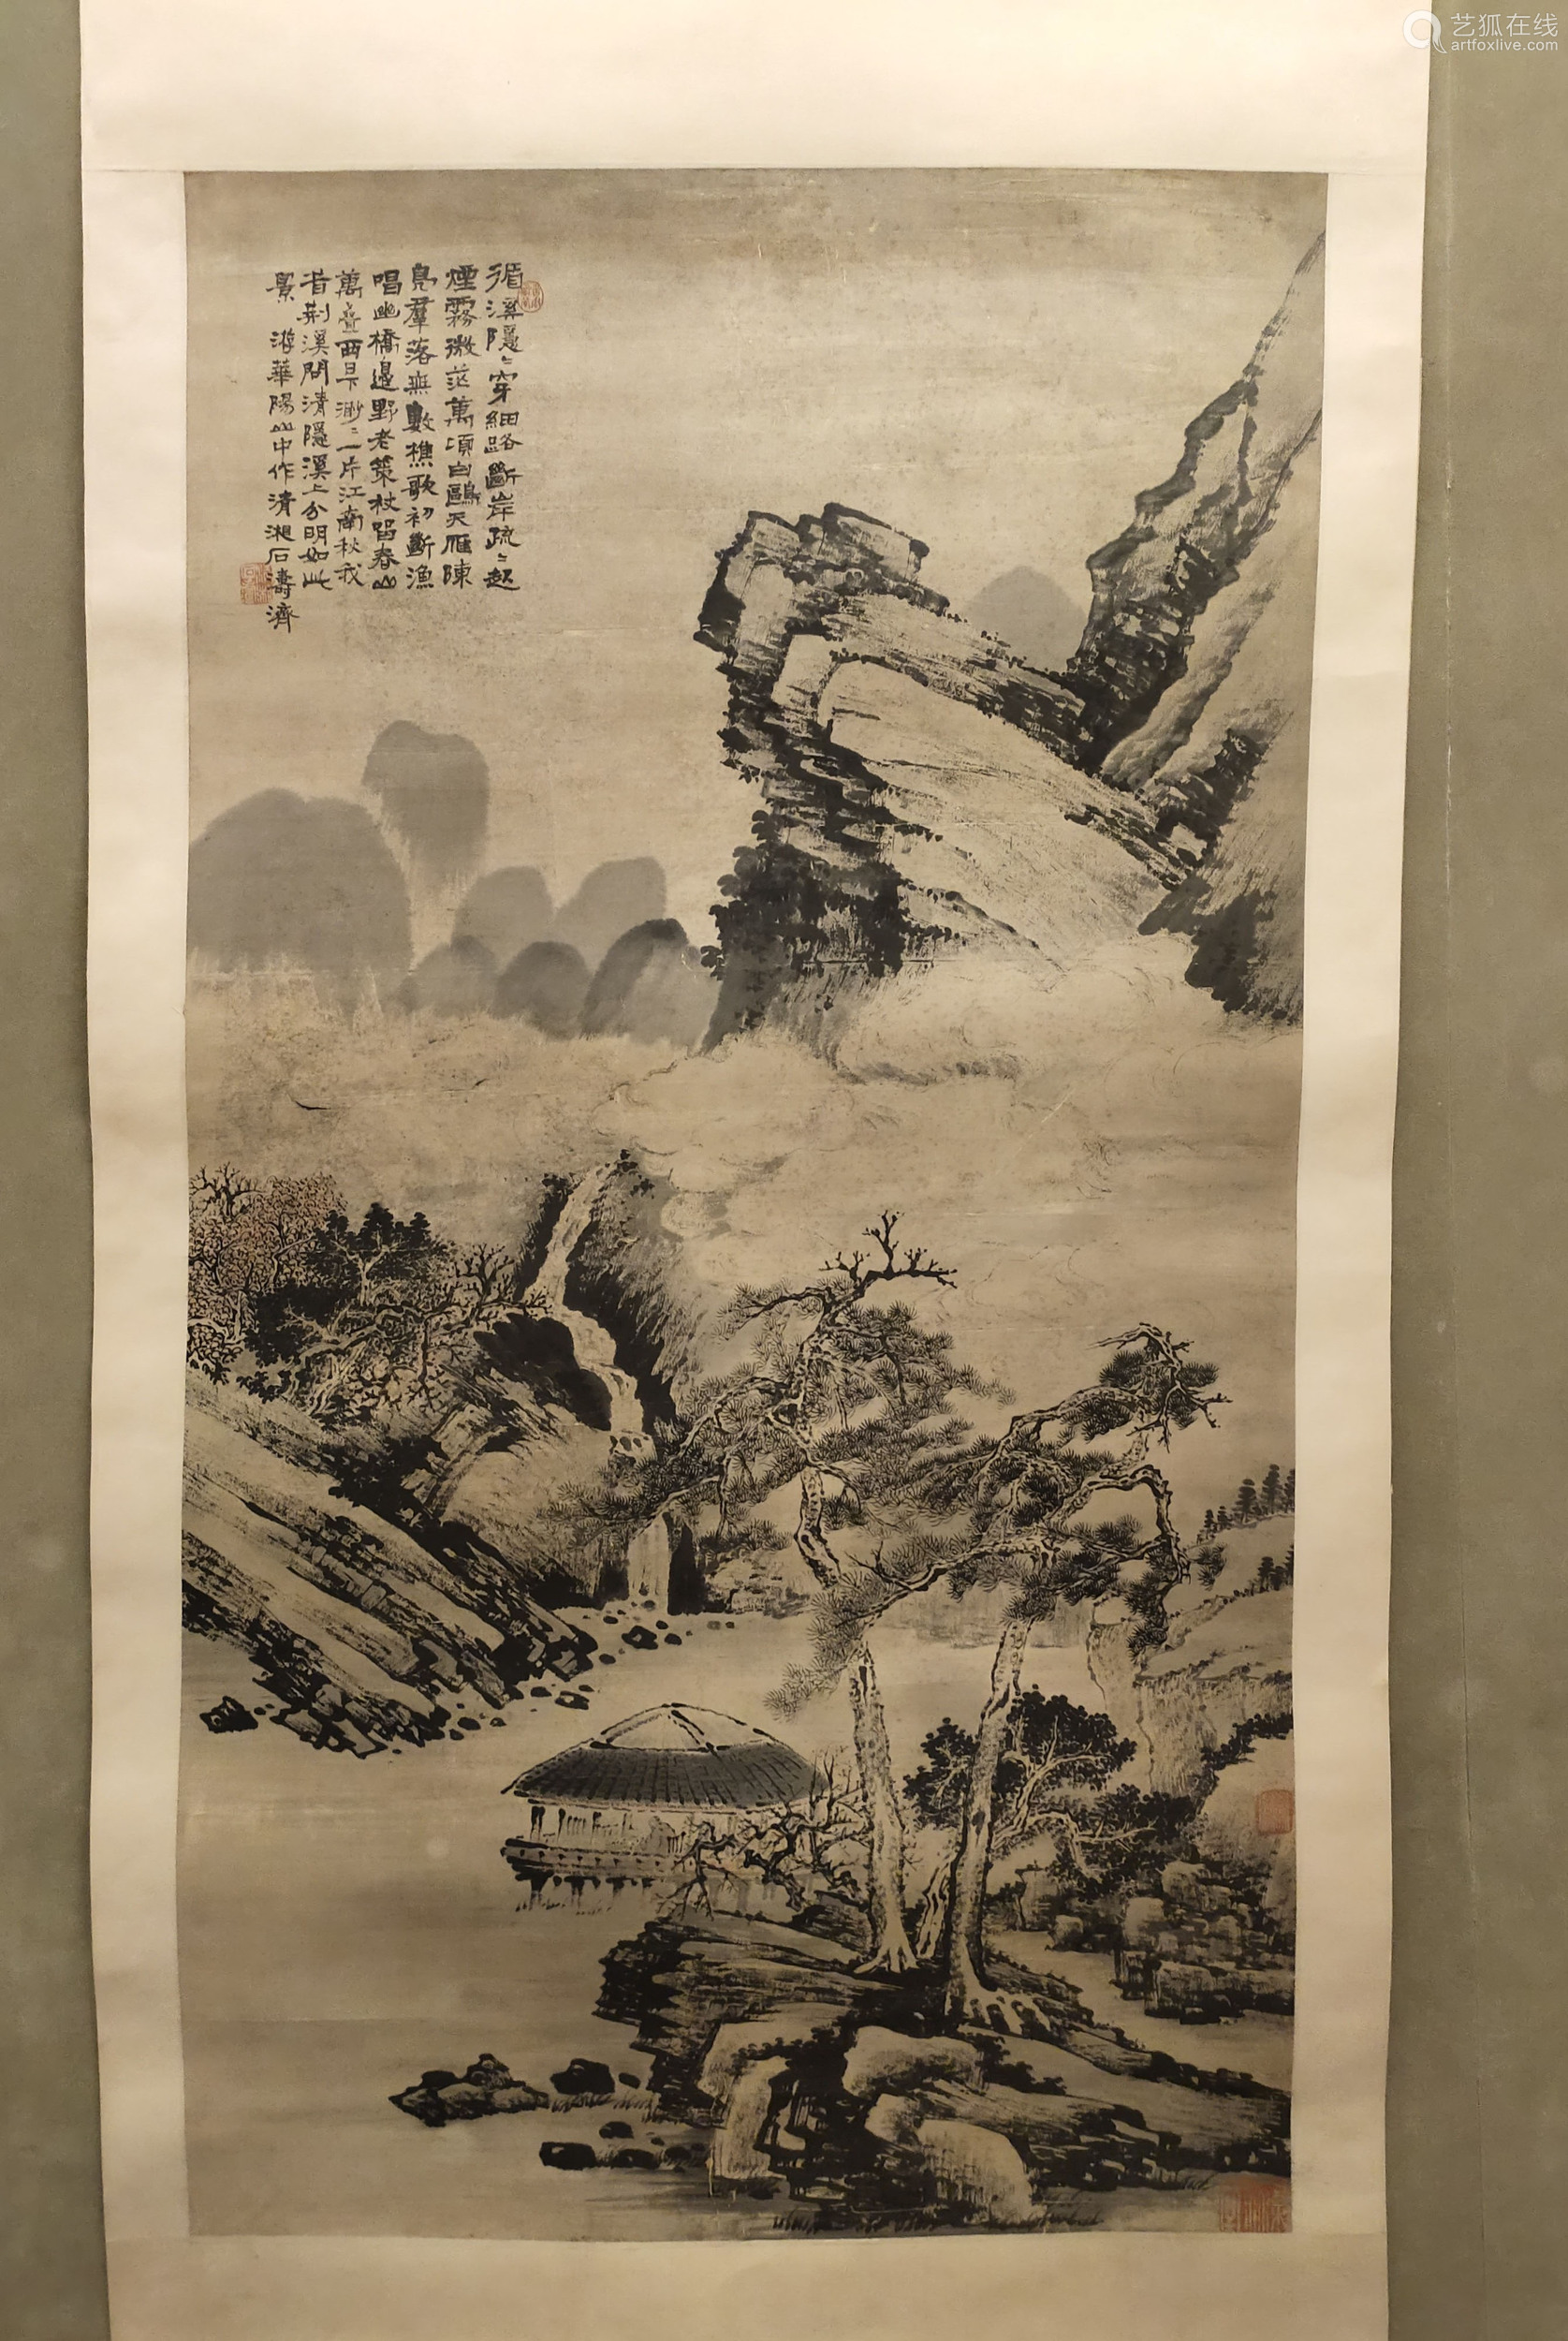 循溪隱〻穿細路斷岸疏〻起
煙霧微茫萬頃白鷗天雁陳
鳧羣落無數樵歌初斷漁
唱幽橋邊野老策杖留春山
萬疊西日下渺〻一片江南秋我
昔荆溪問清隱溪上分明如此
景 游華陽山中作清湘石濤濟
艺狐在线
artfoxlive.com